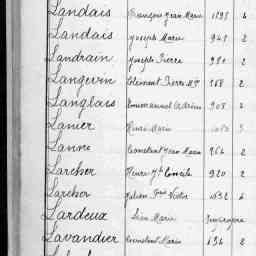 Landais François Jean Marie 1898 4
Landais Joseph Marie 949 2
Landrain Joseph Pierre 980 2
Langevin Clément Pierre 968 2
Langlais Emmanuel 908 2
Lanier Marie 3
Lanne Constant Jean Marie 964 2
Larcher Henri 920 2
Larcher Victor 1032 4
Lardeux Jean Marie
Lavandier Constant Marie 634 2